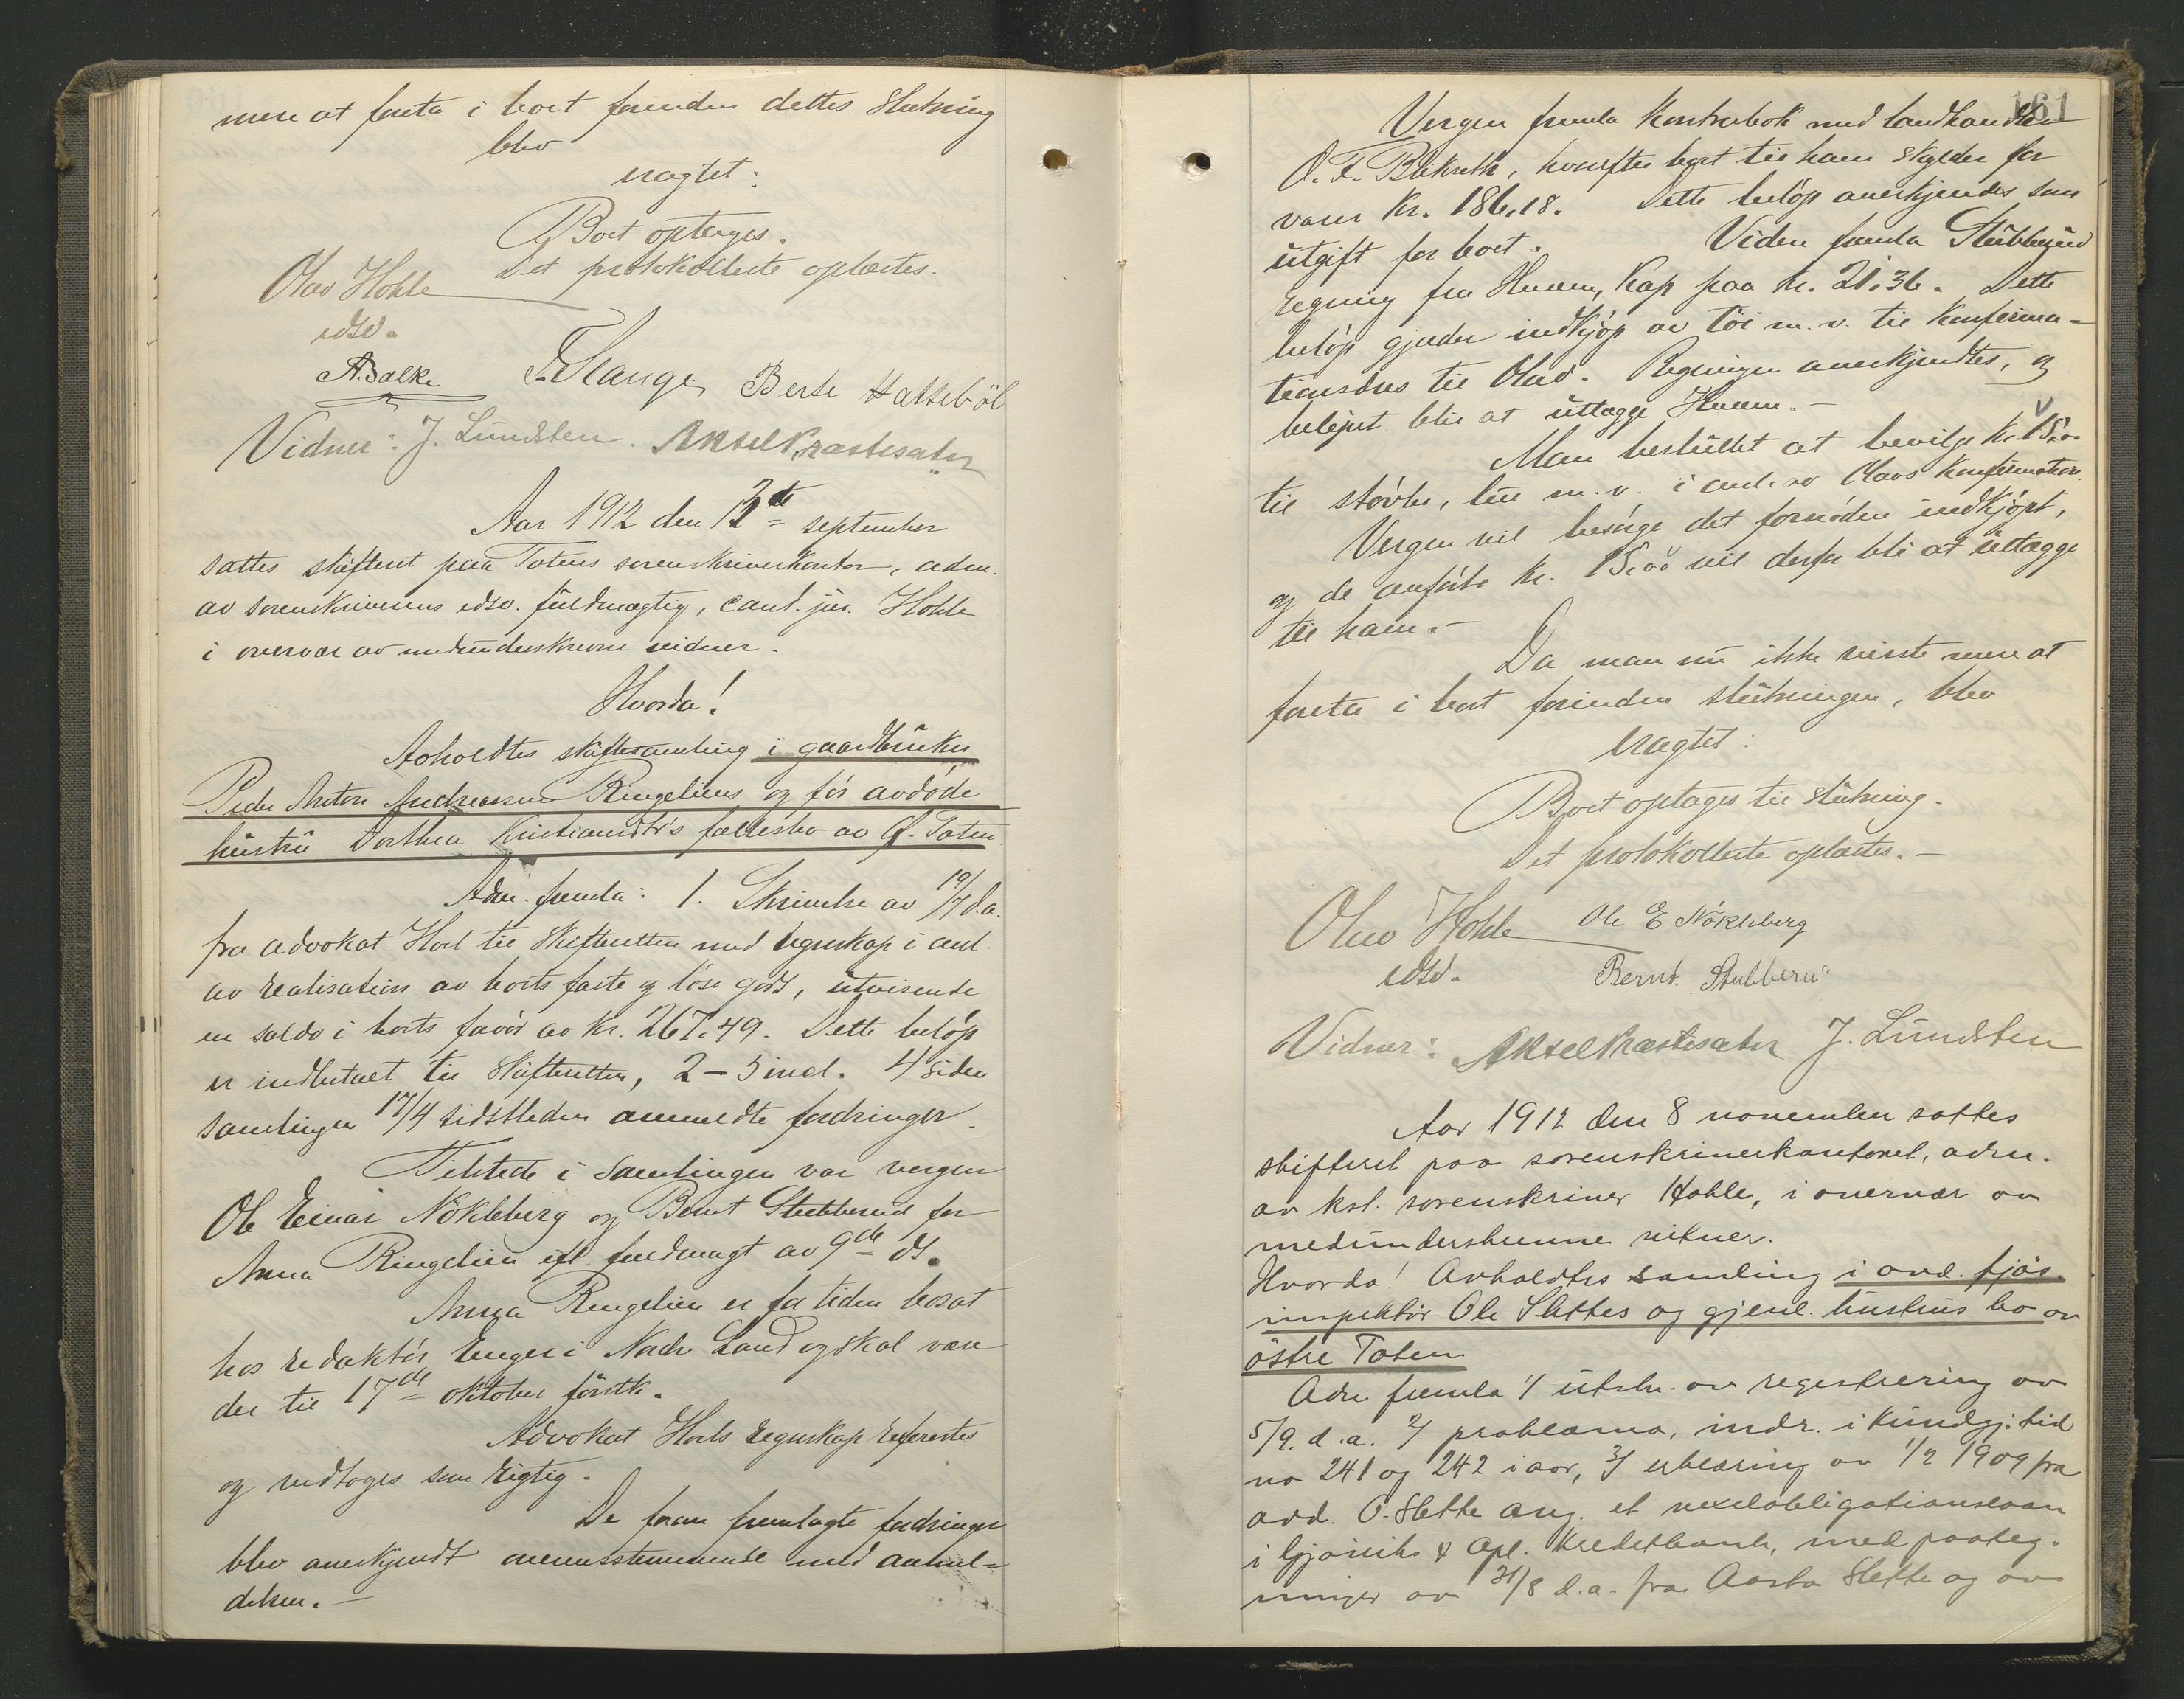 mere at foreta i boet forinden dettes slutning
blev
eragtet:
Boet optages.
Det protokollerte oplæstes.
Olav Hohle
edsv.
A. Balke Berte Hattebøl
Vidner: J. Lundsten. Aksel Kræstesæter
Aar 1912 den 13de september
sattes skifteret paa Totens sorenskriverkontor, adm.
av sorenskriverens edsv. fuldmægtig, cand. jur. Hohle
i overvær av medunderskrevne vidner.
Hvorda!
Avholdtes skiftesamling i gaardbruker
Peder Anton Andreassen Ringeliens og før avdøde
hustru Dorthea Kristiansdtr's fællesbo av Ø. Toten.
Adm. fremla: 1. Skrivelse av 19/7 d.a.
fra advokat Horl til skifteretten med regnskap i anl.
av realisation av boets faste og løse gods, utvisende
en saldo i boets favør av kr. 267.49. Dette beløp
er indbetalt til skifteretten, 2–5 incl. 4 siden
samlingen 17/4 sidstleden anmeldte fordringer.
Tilstede i samlingen var vergen
Ole Einar Nökleberg og Bernt Stubberud for
Anna Ringelien ifl. fuldmagt av 9de ds.
Anna Ringelien er for tiden bosat
hos redaktør Enger i Nordre Land og skal være
der til 17de oktober førstk.
Advokat Horls regnskap refererertes
og vedtoges som rigtig.
De foran fremlagte fordringer
blev anerkjendt overensstemmende med anmel-
delsen. –
161
Vergen fremla kontrabok med landhandler
O. F. Blikseth, hvorefter boet til ham skylder for
varer kr. 186.18. Dette beløp anerkjendes som
utgift for boet. Viden fremla Stubberud
regning fra Huuem, Kap paa kr. 21.36. Dette
beløp gjælder indkjøp av tøi m. v. til konfirma-
tionsdres til Olav. Regningen anerkjendtes, og
beløpet blir at utlægge Huuem. –
Man besluttet at bevilge kr. 15.00
til støvler, lue m. v. i anl. av Olavs konfirmation.
Vergen vil besørge det fornødne indkjøpt,
og de anførte kr. 15.00 vil derfor bli at utlægge
til ham. –
Da man nu ikke visste mere at
foreta i boet forinden slutningen, blev
eragtet:
Boet optages til slutning.
Det protokollerte oplæstes. –
Olav Hohle Ole E Nökleberg
edsv. Bernt. Stubberud
Vidner: Aksel Kræstesæter J. Lundsten
Aar 1912 den 8 november sattes
skifteret paa sorenskriverkontoret, adm.
av kst. sorenskriver Hohle, i overvær av
medunderskrevne vitner.
Hvorda! Avholdtes samling i avd. fjøs-
inspektør Ole Slettes og gjenl. hustrus bo av
østre Toten
Adm fremla 1/ utskr. av registrering av
5/9. d. a. 2/ proklama, indr. i Kundgj. tid
no 241 og 242 i aar, 3/ erklæring av 1/2 1909 fra
avd. O. Slette ang. et vexelobligationslaan
i Gjøviks & Opl. Kreditbank, med paateg-
ninger av 31/8 d. a. fra Aasta Slette og av